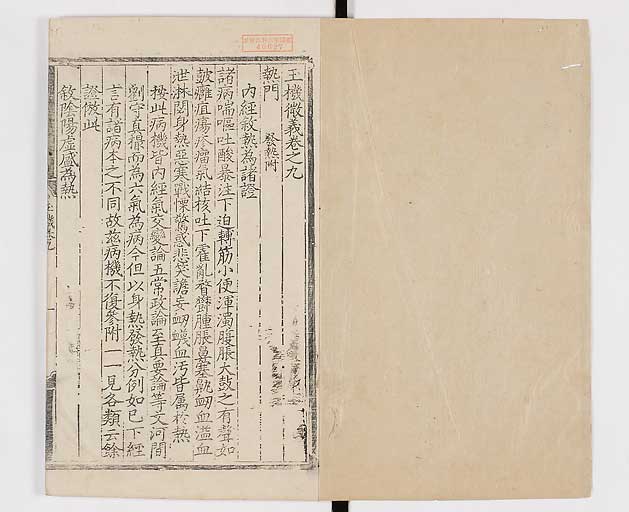 玉機微義卷之九
熱門 發熱附
內經敘熱為諸證
諸病喘嘔吐酸暴注下迫轉筋小便渾濁腹脹大鼓之有聲如
瘡疽瘍疹瘤氣結核吐下霍亂瞀鬱腫脹鼻塞鼽衄血溢血
泄淋閟身熱惡寒戰慄驚惑悲笑譫妄衄衊血汚皆屬於熱
按此病機皆內經氣交變論五常政論至真要論等文河間
劉守真撮而為六氣為病今但以身熱發熱分例如巳下經
言有諸病本之不同故玆病機不復參附一一見各類云餘
證倣此
敘陰陽虛盛為熱